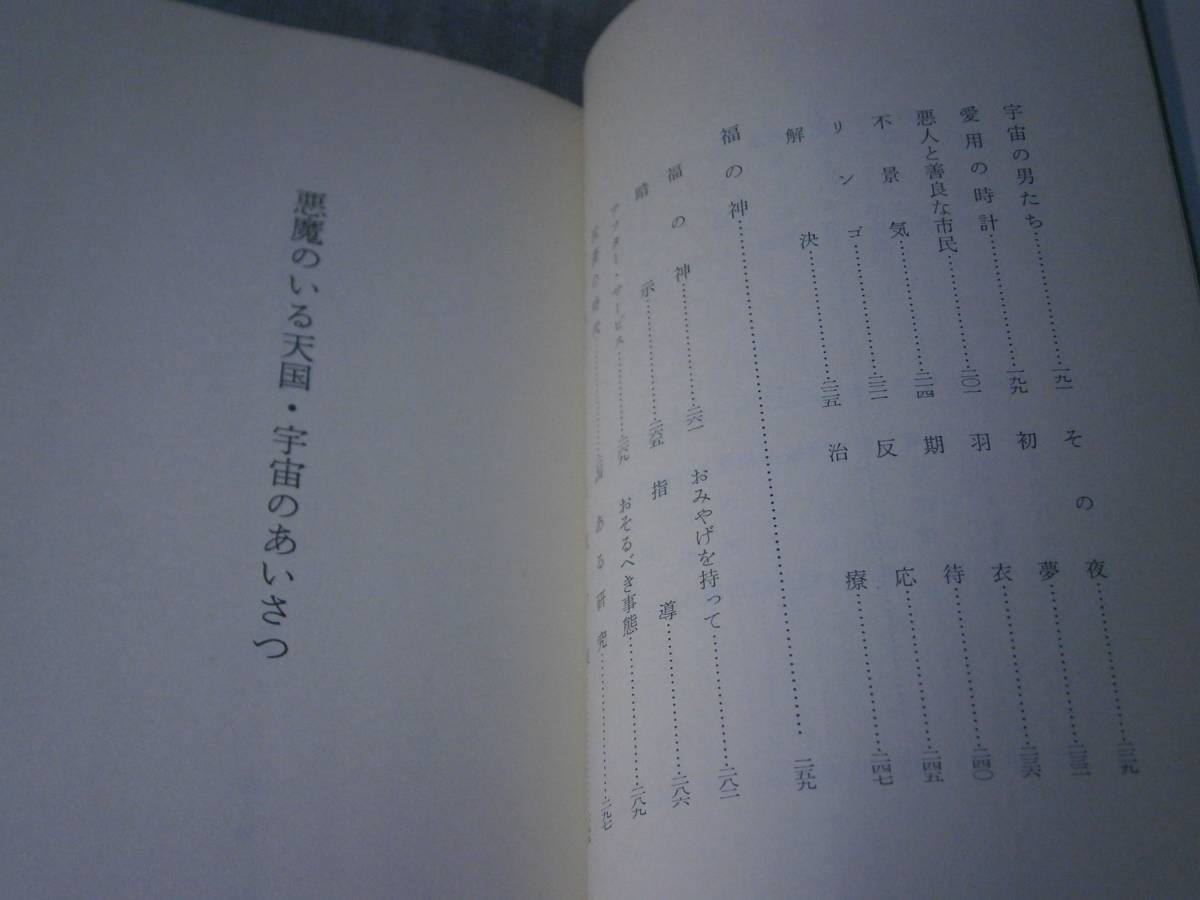 宇宙の男たち……………一九一
愛用の時計……………一九九
悪人と善良な市民……………二〇一
不景気……………二一四
リンゴ……………二二一
解決……………二二五
その夜……………二二九
初夢……………二三二
羽衣……………二三六
期待……………二四〇
反応……………二四五
治療……………二四七
福の神……………二五九
福の神……………二六一
暗示……………二六五
アフター・サービス……………二六九
おみやげを持って……………二八二
指導……………二八六
おそるべき事態……………二八九
ある研究……………二九七
悪魔のいる天国・宇宙のあいさつ